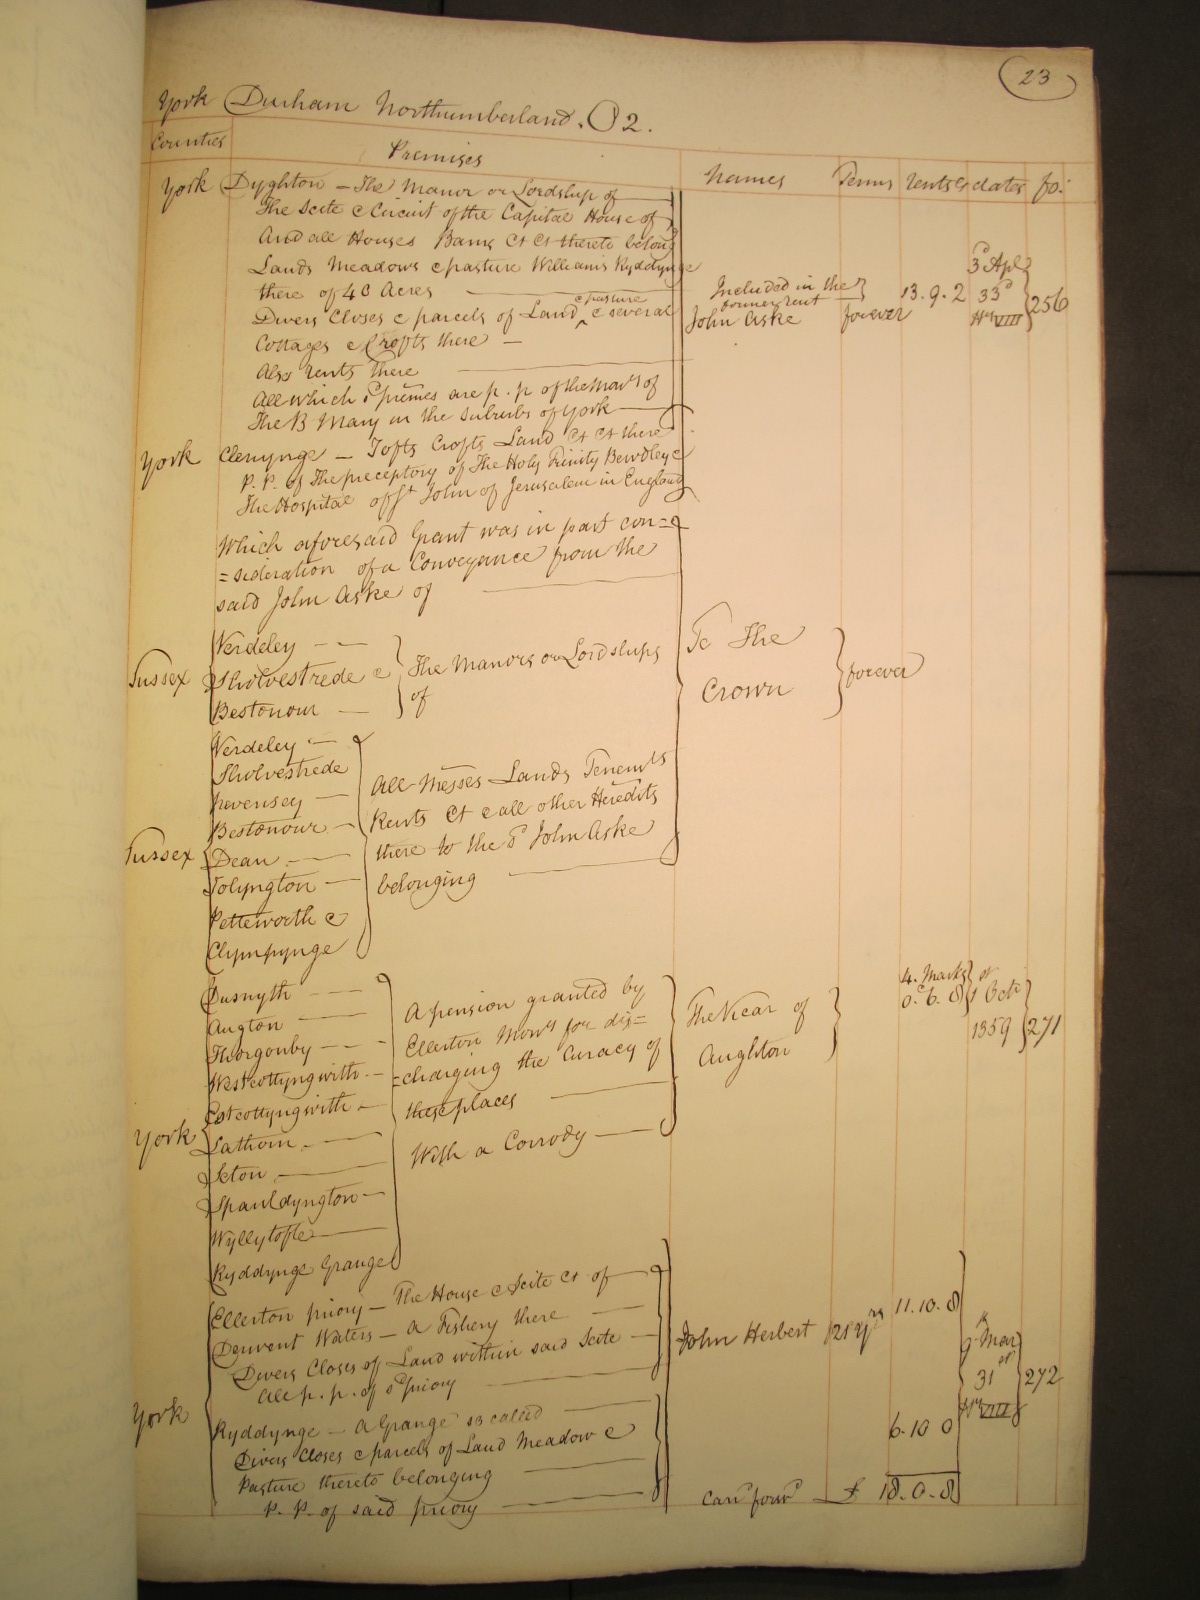 23
York Durham Northumberland. O 2.
Counties Premises Names Terms rents &c dates fo:
York Dyghton — The Manor or Lordship of
The Scite & Circuit of the Capital House of
And all Houses Barns &c &c thereto belong
Lands Meadows & pasture Williams Ryddynge
there of 40 Acres
Divers Closes & parcels of Land & pasture & several
Cottages & Crofts there —
Also rents there
All which sd premes are p. p of the Mony of
The B Mary in the Suburbs of York
Included in the
former rent
John Aske forever 13. 9. 2 3d Apl 33d Hry VIII 256
York Clenynge — Tofts Crofts Land &c &c there
P. P. of The preceptory of The Holy Trinity Bewdley &
The Hospital of St John of Jerusalem in England
Which aforesaid Grant was in part con=
=sideration of a Conveyance from the
said John Aske of
Sussex Verdeley —
Sholvestrede &
Bestonour —
The Manors or Lordships
of
To The
Crown
forever
Sussex Verdeley —
Sholvestrede
pevensey —
Bestonour —
Dean —
Jolyngton —
Petteworth &
Clympynge
All Messes Lands Tenemts
Rents &c & all other Heredits
there to the sd John Aske
belonging
York Dusnyth —
Augton —
Thorgonby —
Westcottyngwith —
Estcottyngwith —
Lathom —
Seton —
Spauldyngton —
Wyllytofte —
Ryddynge Grange
A pension granted by
Ellerton Mony for dis=
=charging the Curacy of
these places
With a Corrody
The Vicar of
Aughton
4. Marks
0. 6. 8
1st Octr
1359
271
York Ellerton priory — The House & Scite &c of
Derwent Waters — a Fishery there
Divers Closes of Land within said Scite —
All p. p. of sd priory
John Herbert 21 yrs 11. 10. 8
9 Mar
31st
Hry VIII
272
Ryddynge — A Grange so called
Divers Closes & parcels of Land Meadow &
Pasture thereto belonging
P. P. of said priory
6. 10 0
Card forwd £ 18. 0. 8